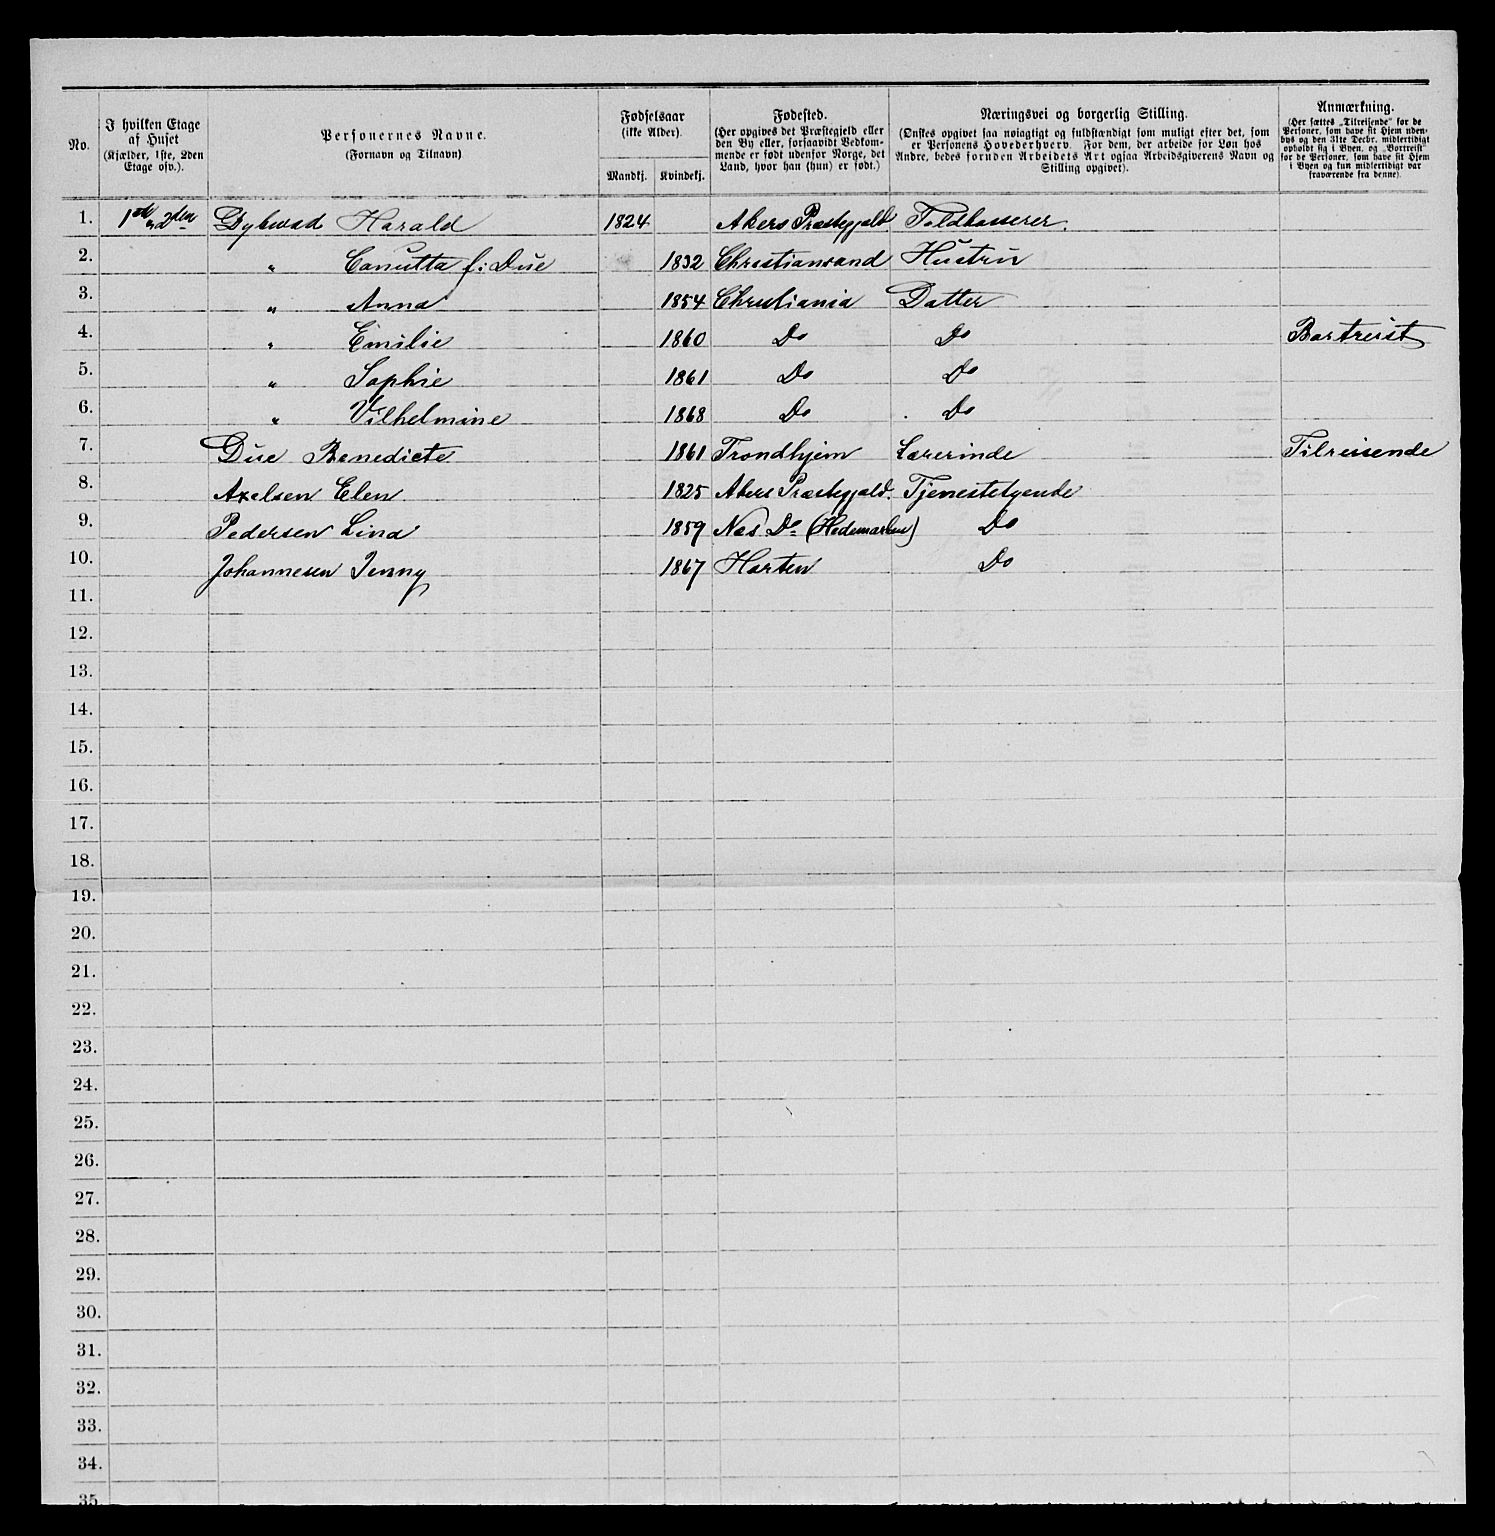 No. | I hvilken Etage af Huset (Kjælder, 1ste, 2den Etage osv.). | Personernes Navne. (Fornavn og Tilnavn) | Fødselsaar (ikke Alder). Mandkj. | Kvindekj. | Fødested. (Her opgives det Præstegjeld eller den By eller, forsaavidt Vedkommende er født udenfor Norge, det Land, hvor han (hun) er født.) | Næringsvei og borgerlig Stilling. (Ønskes opgivet saa nøiagtigt og fuldstændigt som muligt efter det, som er Personens Hovederhverv. For dem, der arbeide for Løn hos Andre, bedes foruden Arbeidets Art ogsaa Arbeidsgiverens Navn og Stilling opgivet). | Anmærkning. (Her sættes „Tilreisende" for de Personer, som have sit Hjem udenbys og den 31te Decbr. midlertidigt opholdt sig i Byen, og „Bortreist" for de Personer, som have sit Hjem i Byen og kun midlertidigt var fraværende fra denne).
1. 1ste & 2den Dybwad Harald 1824 Akers Præstegjæld Toldkasserer.
2. " Canutta f: Due 1832 Christiansand Hustru
3. " Anna 1854 Christiania Datter
4. " Emilie 1860 Do Do Bortreist
5. " Sophie 1861 Do Do
6. " Vilhelmine 1868 Do Do
7. Due Benedicte 1861 Trondhjem Lærerinde Tilreisende
8. Axelsen Elen 1825 Akers Præstegjæld. Tjenestetyende
9. Pedersen Lina 1859 Næs Do (Hedemarken) Do
10. Johannesen Jenny 1867 Horten Do
11.
12.
13.
14.
15.
16.
17.
18.
19.
20.
21.
22.
23.
24.
25.
26.
27.
28.
29.
30.
31.
32.
33.
34.
35.